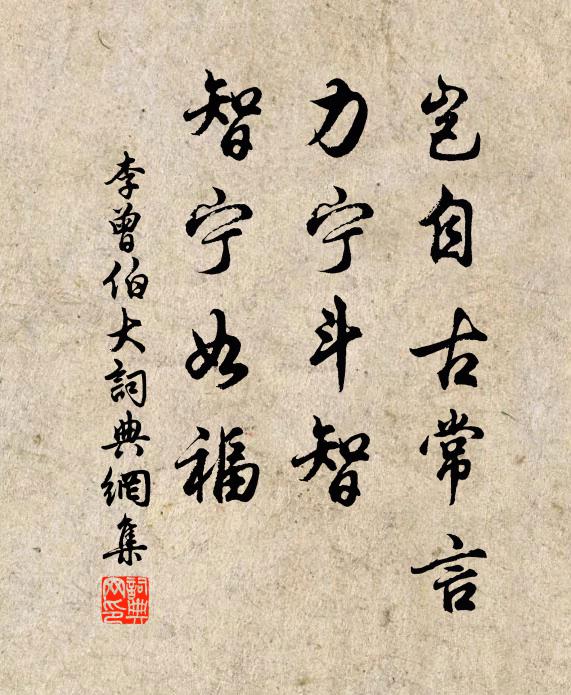 岂自古常言
力宁斗智
智宁如福
李曾伯大詞典網集
詞典
网印